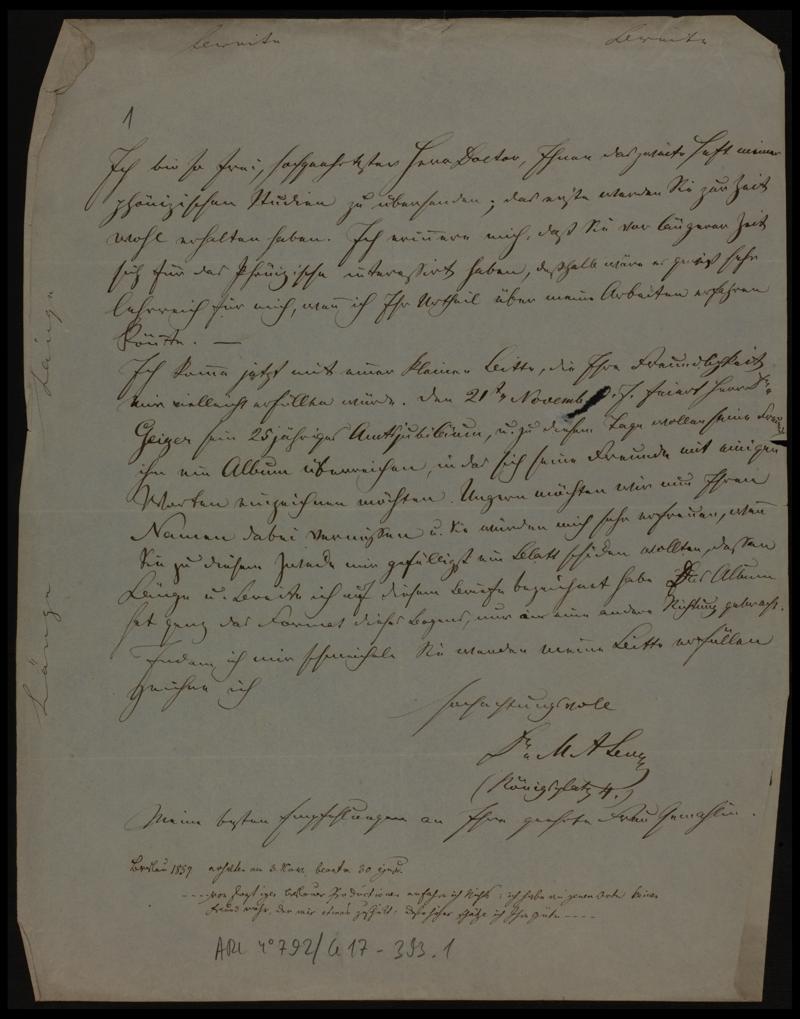 Breite Breite
1
Ich bin so frei, hochgeehrtester Herr Doctor, Ihnen das zweite Heft meiner
phönizischen Studien zu übersenden; das erste werden Sie zur Zeit
wohl erhalten haben. Ich erinnere mich, daß Sie vor längerer Zeit
sich für das Phönizische interessirt haben, deßhalb wäre es gewiß sehr
lehrreich für mich, wenn ich Ihr Urtheil über meine Arbeiten erfahren
könnte. —
Ich komme jetzt mit einer kleinen Bitte, die Ihre Freundlichkeit
mir vielleicht erfüllen würde. Den 21ten Novemb. d. J. feiert Herr Dr.
Geiger sein 25jähriges Amtsjubiläum, u. zu diesem Tage wollen seine Freunde
ihm ein Album überreichen, in das sich seine Freunde mit einigen
Worten einzeichnen möchten. Ungern möchten wir nun Ihren
Namen dabei vermissen u. Sie würden mich sehr erfreuen, wenn
Sie zu diesem Zwecke mir gefälligst ein Blatt schicken wollten, dessen
Länge u. Breite ich auf diesem Briefe bezeichnet habe. Das Album
hat ganz das Format dieses Bogens, nur in eine andere Richtung gebracht.
Indem ich mir schmeichele Sie werden meine Bitte erfüllen
zeichne ich
hochachtungsvoll
Dr. M A Levy
(Königsplatz 4.)
Meine besten Empfehlungen an Ihre geehrte Frau Gemahlin.
Breslau 1857 erhalten am 3. Nov. beantw. 30
erfahre ich Nichts; ich habe an jenem Orte keinen
Freund mehr, der mir etwas; desto höher schätze ich Ihre Güte ----
ARC 4° 792/G 17 - 393.1
Länge
Länge